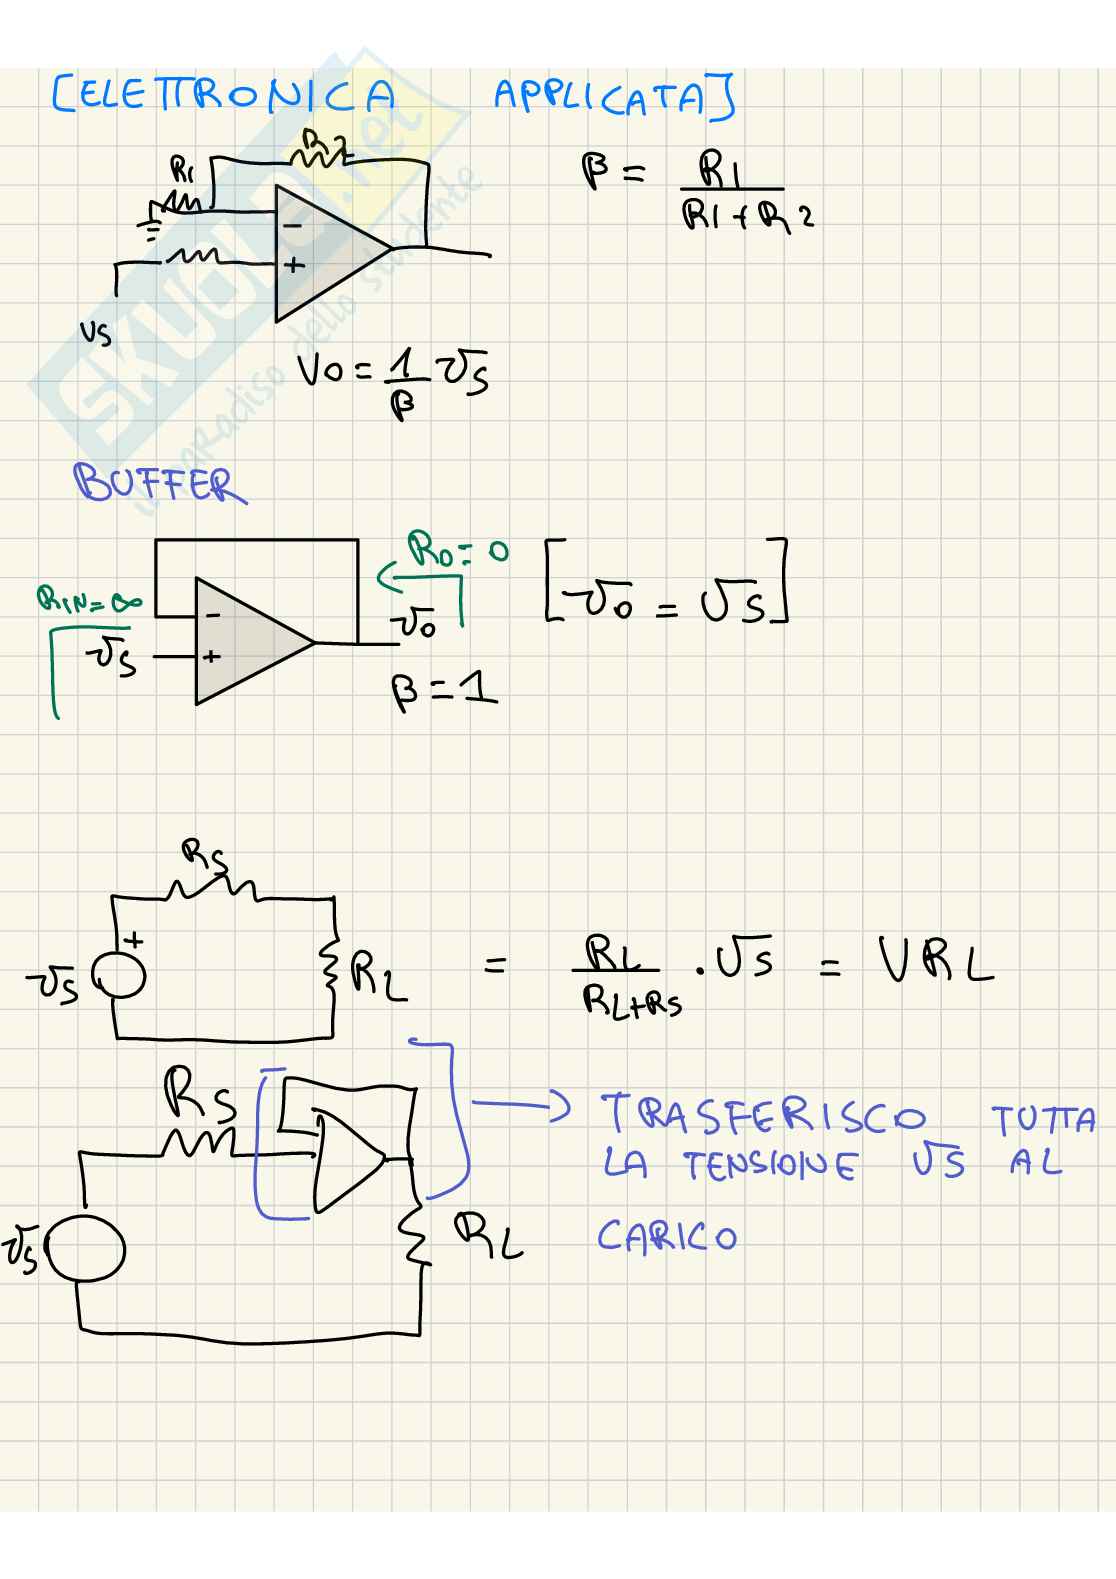 [ELETTRONICA APPLICATA]
R2
R1
β = R1 / (R1 + R2)
−
+
vs
Vo = 1/β vs
SKUOLA.net
il paradiso dello studente
BUFFER
Ro = 0
[vo = vs]
RIN = ∞
−
vo
vs
+
β = 1
Rs
+
vs
RL = RL / (RL+Rs) . vs = VRL
Rs
→ TRASFERISCO TUTTA
LA TENSIONE vs AL
vs
RL
CARICO